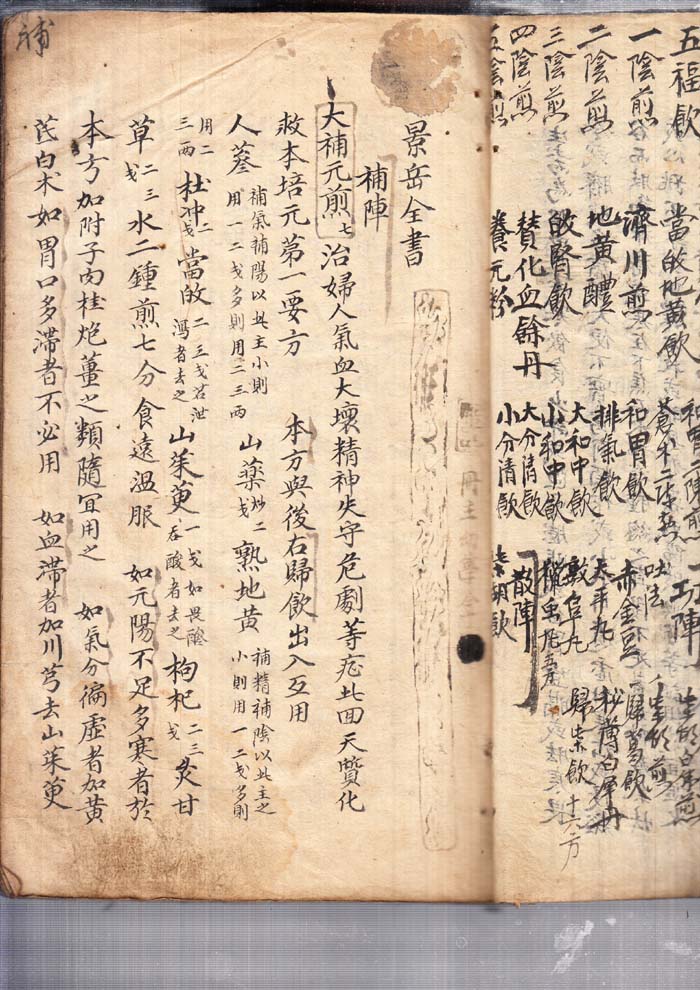 五福飲
一陰煎
二陰煎
三陰煎
四陰煎
五陰煎
當皈地黄飲
濟川煎
地黄醴
皈腎飲
贊化血餘丹
養元粉
蒼术二陳煎
和胃飲
排氣飲
大和中飲
小和中飲
大分清飲
小分清飲
攻陣
吐法
赤金豆
太平丸
敦阜丸
獵虫丸五方
散陣
柴胡飲
歸葛飲
秘傳白犀丹
歸柴飲 十六方
補
景岳全書
補陣
大補元煎 七 治婦人氣血大壞精神失守危劇等症此回天贊化
救本培元第一要方 本方與後右歸飲出入互用
人蔘 補氣補陽以此主小則用一二戔多則用二三両 山藥 炒二戔 熟地黄 補精補陰以此主之小則用一二戔多則
用二三両 杜冲 二戔 當皈 二三戔若泄瀉者去之 山茱萸 一戔如畏酸吞酸者去之 枸杞 二三戔 炙甘
草 二三戔 水二鍾煎七分食遠溫服 如元陽不足多寒者於
本方加附子肉桂炮薑之類隨宜用之 如氣分偏虛者加黄
芪白术如胃口多滯者不必用 如血滯者加川芎去山茱萸